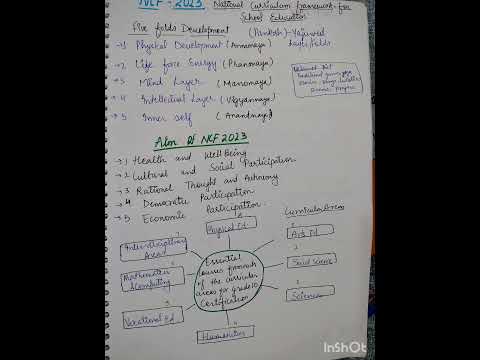 NCF - 2023 National Curriculum framework for School Education
five folds Development (Pankosh) - Yajurved
→1 Physical Development (Annamaya) Layer/folds
→2 Life force Energy (Pranamaya)
→3 Mind Layer (Manomaya)
→4 Intellectual Layer (Vigyanmaya)
→5 Inner self (Anandmaya)
Aim of NCF 2023
→1 Health and Well Being
→2 Cultural and Social Participation
→3 Rational Thought and Autonomy
→4 Democratic Participation
→5 Economic Participation.
Curricular Areas
8
Physical Ed.
7
Interdisciplinary Area
1
Art Ed
6
Mathematics & Computing
2
Social Science
Essential
of the curricular
areas for grade 10
Certification
5
Vocational Ed
3
Science
4
Humanities
InShOt